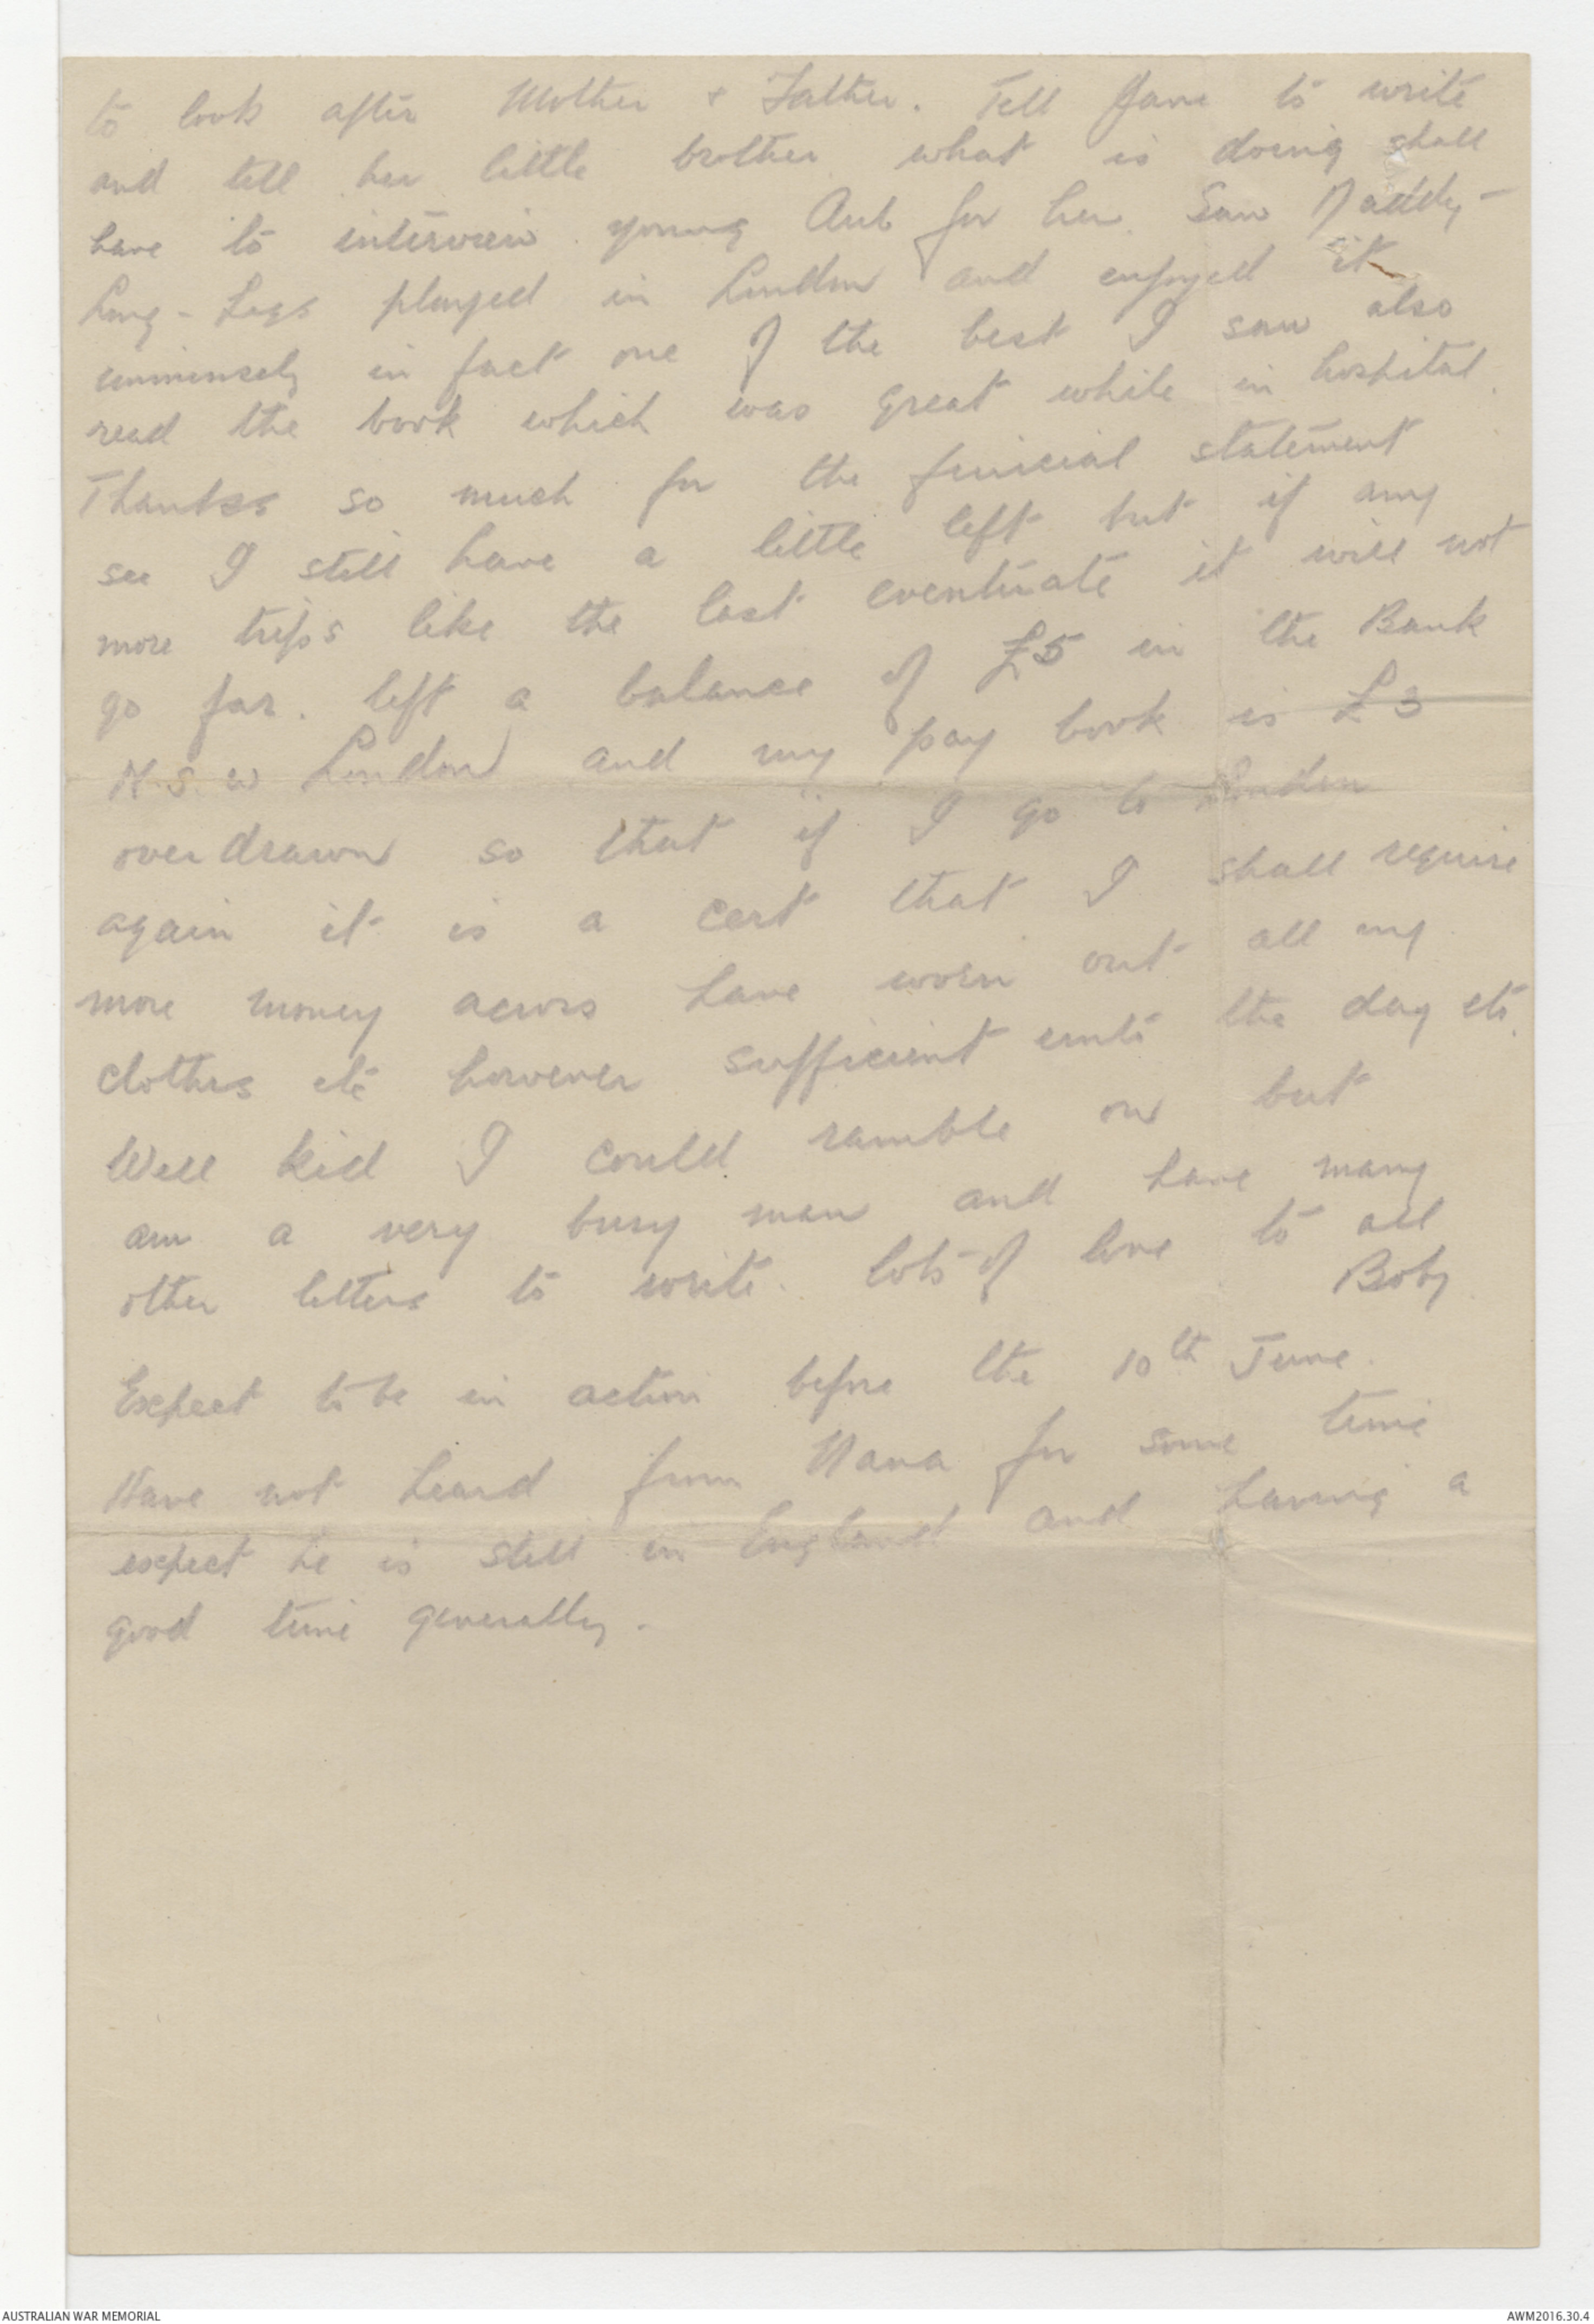 to look after Mother & Father. Tell Jane to write
and tell her little brother what is doing shall
have to interview young Aub for her. Saw Daddy-
Long-Legs played in London and enjoyed it
immensely in fact one of the best I saw also
read the book which was great while in hospital.
Thanks so much for the finicial statement
see I still have a little left but if any
more trips like the last eventuate it will not
go far. left a balance of £5 in the Bank
N.S.W London and my pay book is £3
overdrawn so that if I go to London
again it is a cert that I shall require
more money across have worn out all my
clothes etc however sufficient unto the day etc.
Well kid I could ramble on but
am a very busy man and have many
other letters to write. lots of love to all
Boby
Expect to be in action before the 10th June.
Have not heard from Nana for some time
expect he is still in England and having a
good time generally.
AUSTRALIAN WAR MEMORIAL
AWM2016.30.4